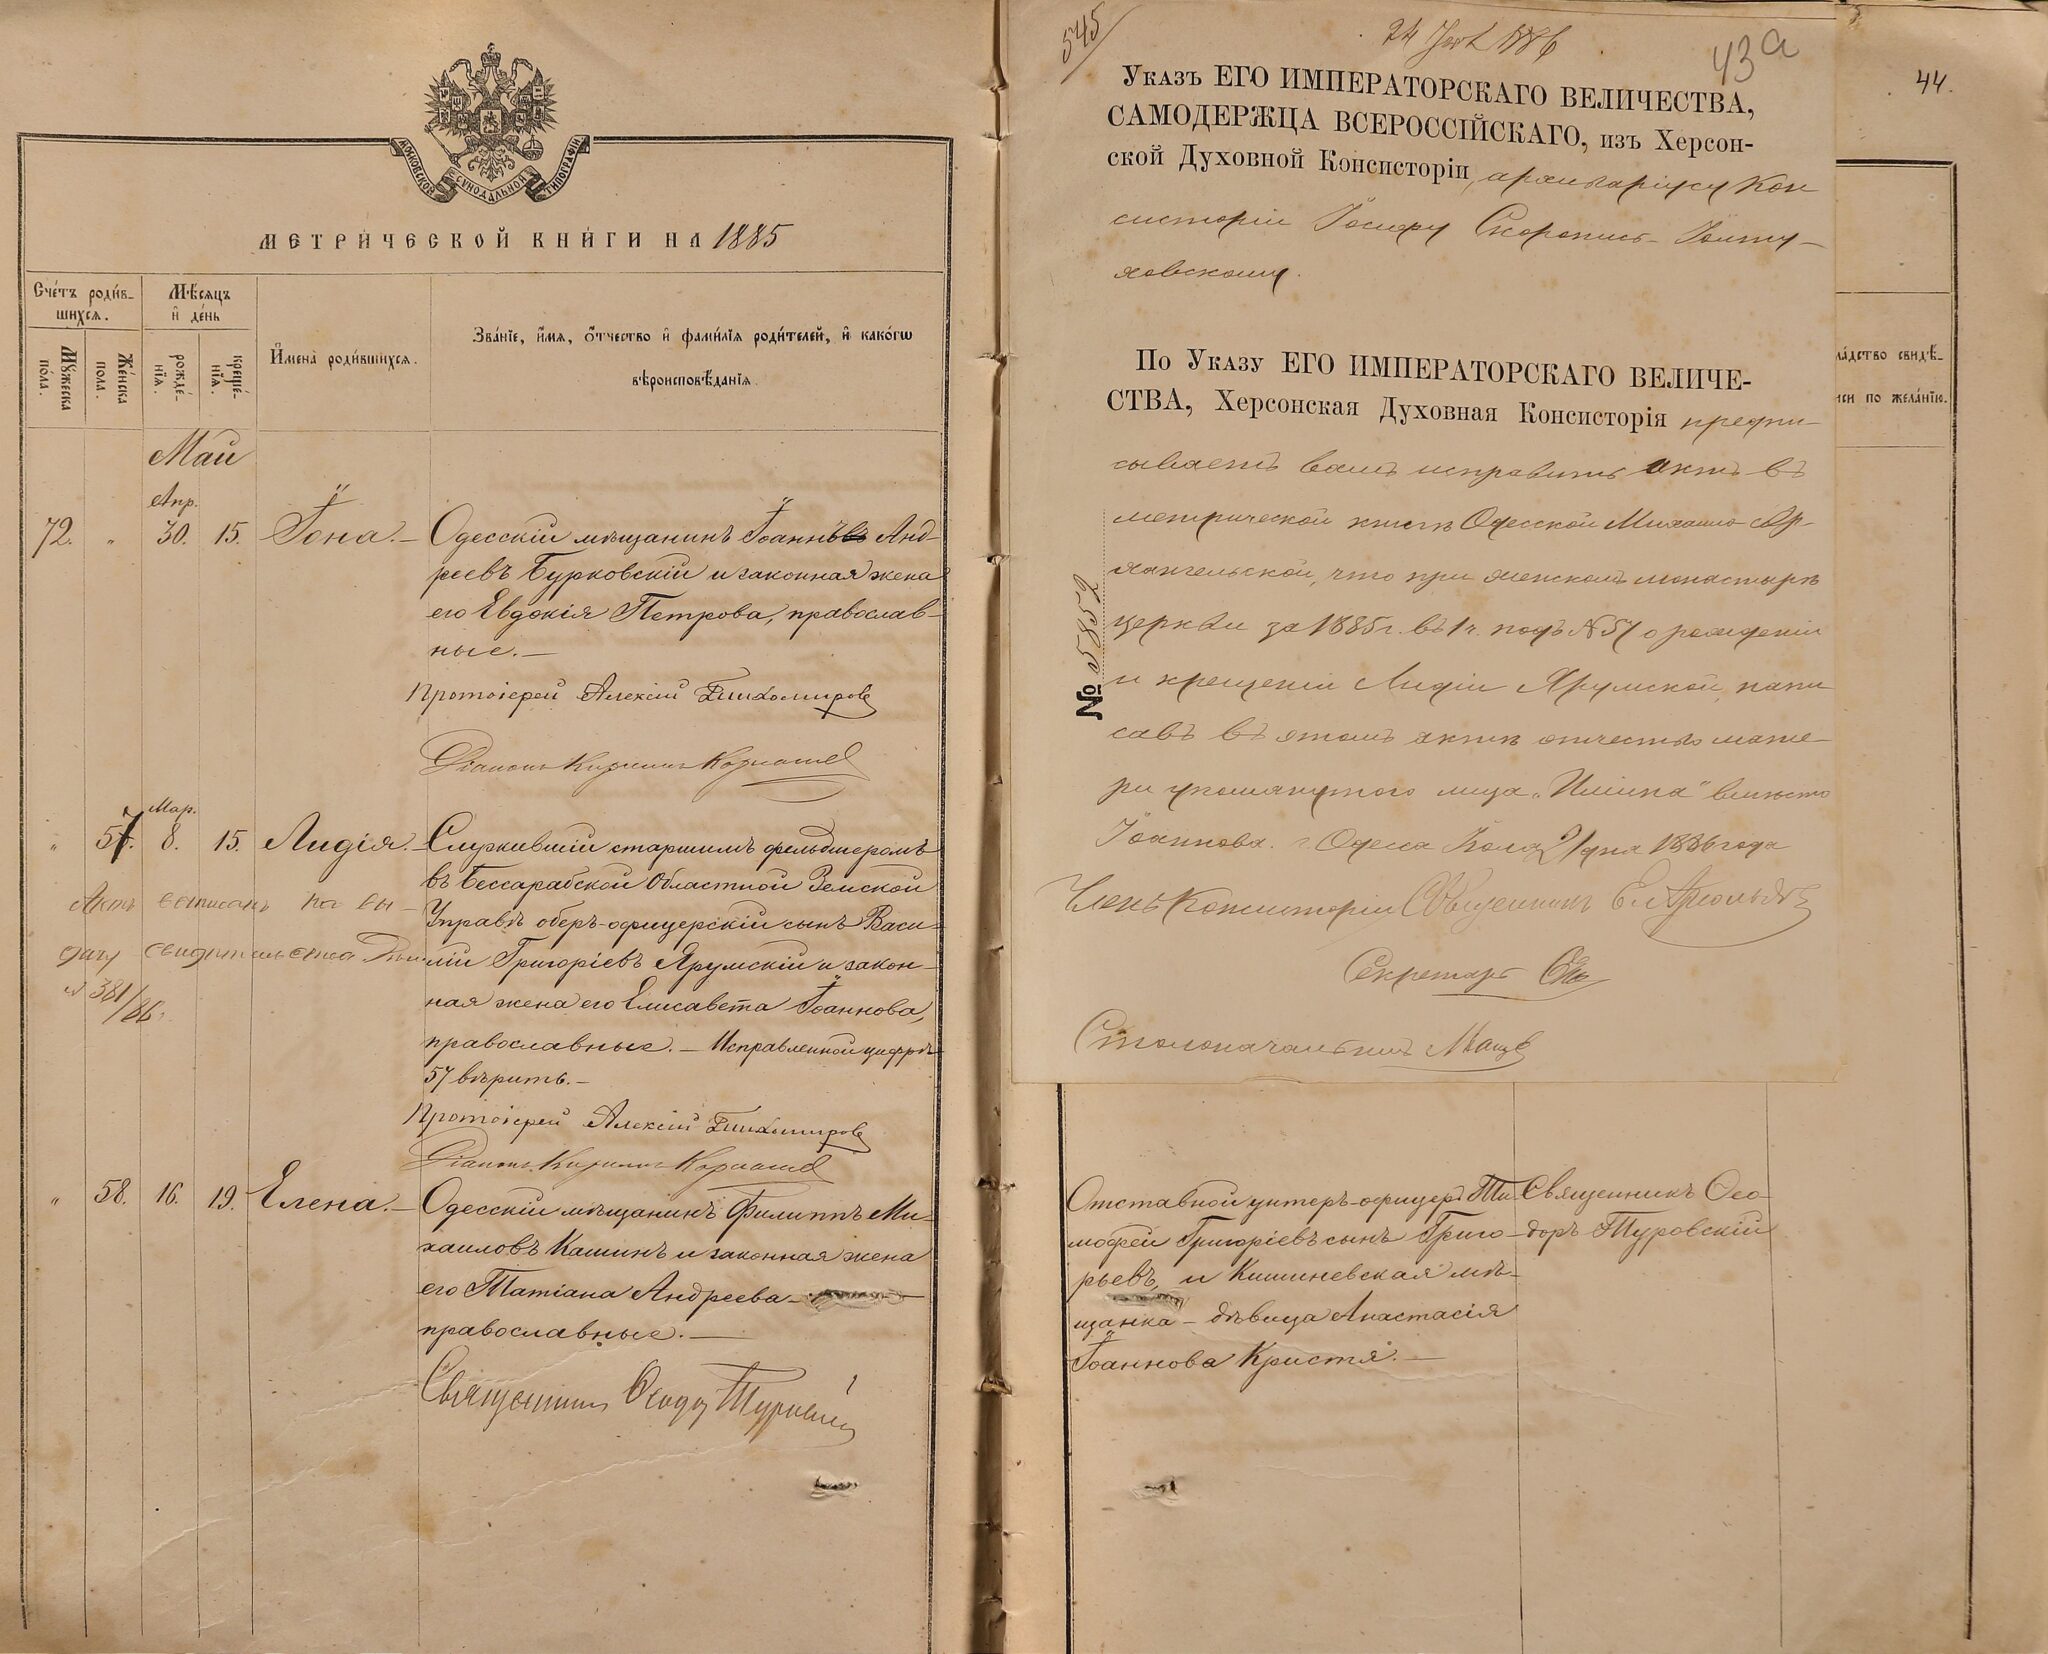 МОСКОВСКОЙ СѴНОДАЛЬНОЙ ТИПОГРАФІИ
МЕТРИ́ЧЕСКОЙ КНИ́ГИ НА 1885
Сче́тъ роди́в-
шихсѧ.
Мѣ́сѧцъ
и҆ де́нь
И҆мена̀ роди́вшихсѧ.
Зва́нїе, и҆́мѧ, ѻ҆́тчество и҆ фами́лїѧ роди́телей, и҆ како́гѡ
вѣроисповѣ́данїѧ.
Мꙋ́жеска
пола.
Же́нска
пола.
рожде́-
нїѧ.
креще́-
нїѧ.
Май
Апр.
72. " 30. 15. Іона. – Одесскій мѣщанинъ Іоаннъ Анд-
реевъ Бурковскій и законная жена
его Евдокія Петрова, православ-
ные. –
Протоіерей Алексій Тихомировъ
Діаконъ Кириллъ
Мар.
" 57. 8. 15. Лидія. – Служившій старшимъ фельдшеромъ
въ Бессарабской Областной Земской
Управѣ оберъ-офицерскій сынъ Васи-
лій Григоріевъ Ярумскій и закон-
ная жена его Елисавета Іоаннова,
православные. – Исправленной цифрѣ
57 вѣрить. –
Актъ выписанъ на вы-
дачу свидѣтельства
№ 381/86.
Протоіерей Алексій Тихомировъ
Діаконъ Кириллъ
" 58. 16. 19. Елена. – Одесскій мѣщанинъ Филиппъ Ми-
хаиловъ Кашинъ и законная жена
его Татіана Андреева –
православные. –
Священникъ Ѳеодоръ Туровскій
545/
24 1886
43а
Указъ ЕГО ИМПЕРАТОРСКАГО ВЕЛИЧЕСТВА,
САМОДЕРЖЦА ВСЕРОССІЙСКАГО, изъ Херсон-
ской Духовной Консисторіи, архиваріусу Кон
систоріи Іосифу Скоропись-Іолту-
ховскому.
По Указу ЕГО ИМПЕРАТОРСКАГО ВЕЛИЧЕ-
СТВА, Херсонская Духовная Консисторія предпи-
сываетъ вамъ исправить актъ въ
метрической книгѣ Одесской Михаило-Ар-
хангельской, что при женскомъ монастырѣ
церкви за 1885 г. въ 1 ч. подъ №57 о рожденіи
и крещеніи Лидіи Ярумской, напи
савъ въ этомъ актѣ отчество мате-
ри упомянутого лица „Иліина" вмѣсто
Іоаннова. г. Одесса Іюля 21 дня 1886 года
№ 5852
Членъ Консисторіи Священникъ
Секретарь
Столоначальникъ
44.
ла́дство свидѣ́-
иси по жела́нїю.
Отставной унтеръ-офицеръ Ти-
мофей Григоріевъ сынъ Григо-
рьевъ, и Кишиневская мѣ-
щанка – дѣвица Анастасія
Іоаннова Кристя. –
Священникъ Ѳео-
доръ Туровскій